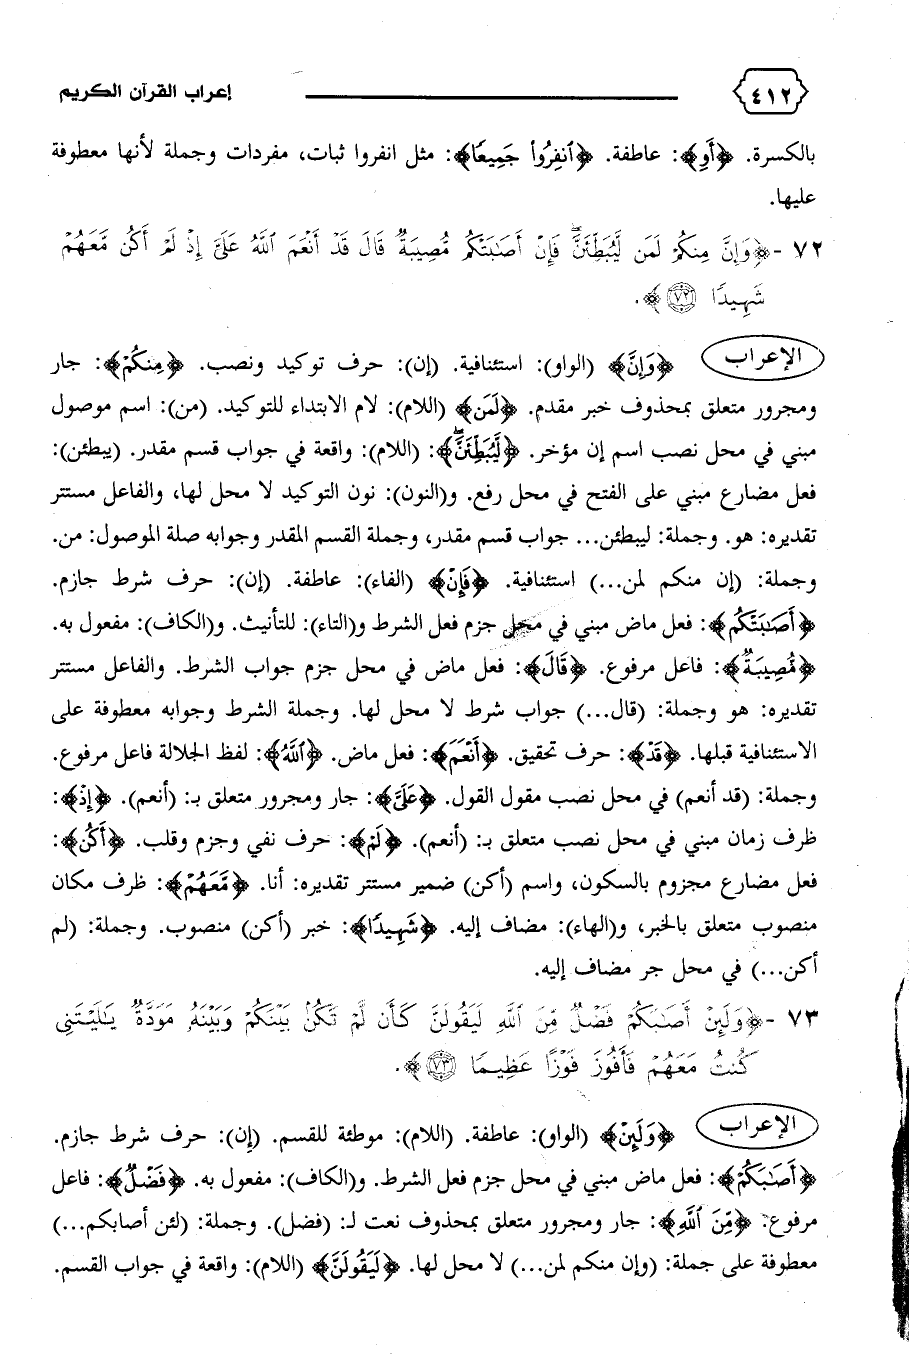 ٤١٢ إعراب القرآن الكريم
بالكسرة. ﴿أَوِ﴾: عاطفة. ﴿ٱنفِرُوا۟ جَمِيعًا﴾: مثل انفروا ثبات، مفردات وجملة لأنها معطوفة
عليها.
٧٢ - ﴿وَإِنَّ مِنكُمْ لَمَن لَّيُبَطِّئَنَّۖ فَإِنْ أَصَـٰبَتْكُم مُّصِيبَةٌ قَالَ قَدْ أَنْعَمَ ٱللَّهُ عَلَىَّ إِذْ لَمْ أَكُن مَّعَهُمْ
شَهِيدًا ﴿٧٢﴾﴾.
الإعراب ﴿وَإِنَّ﴾ (الواو): استئنافية. (إن): حرف توكيد ونصب. ﴿مِنكُمْ﴾: جار
ومجرور متعلق بمحذوف خبر مقدم. ﴿لَمَن﴾ (اللام): لام الابتداء للتوكيد. (من): اسم موصول
مبني في محل نصب اسم إن مؤخر. ﴿لَّيُبَطِّئَنَّۖ﴾: (اللام): واقعة في جواب قسم مقدر. (يبطئن):
فعل مضارع مبني على الفتح في محل رفع. و(النون): نون التوكيد لا محل لها، والفاعل مستتر
تقديره: هو. وجملة: ليبطئن... جواب قسم مقدر، وجملة القسم المقدر وجوابه صلة الموصول: من.
وجملة: (إن منكم لمن...) استئنافية. ﴿فَإِنْ﴾ (الفاء): عاطفة. (إن): حرف شرط جازم.
﴿أَصَـٰبَتْكُم﴾: فعل ماض مبني في محل جزم فعل الشرط و(التاء): للتأنيث. و(الكاف): مفعول به.
﴿مُّصِيبَةٌ﴾: فاعل مرفوع. ﴿قَالَ﴾: فعل ماض في محل جزم جواب الشرط. والفاعل مستتر
تقديره: هو وجملة: (قال...) جواب شرط لا محل لها. وجملة الشرط وجوابه معطوفة على
الاستئنافية قبلها. ﴿قَدْ﴾: حرف تحقيق. ﴿أَنْعَمَ﴾: فعل ماض. ﴿ٱللَّهُ﴾: لفظ الجلالة فاعل مرفوع.
وجملة: (قد أنعم) في محل نصب مقول القول. ﴿عَلَىَّ﴾: جار ومجرور متعلق بـ: (أنعم). ﴿إِذْ﴾:
ظرف زمان مبني في محل نصب متعلق بـ: (أنعم). ﴿لَمْ﴾: حرف نفي وجزم وقلب. ﴿أَكُن﴾:
فعل مضارع مجزوم بالسكون، واسم (أكن) ضمير مستتر تقديره: أنا. ﴿مَّعَهُمْ﴾: ظرف مكان
منصوب متعلق بالخبر، و(الهاء): مضاف إليه. ﴿شَهِيدًا﴾: خبر (أكن) منصوب. وجملة: (لم
أكن...) في محل جر مضاف إليه.
٧٣ - ﴿وَلَئِنْ أَصَـٰبَكُمْ فَضْلٌ مِّنَ ٱللَّهِ لَيَقُولَنَّ كَأَن لَّمْ تَكُنۢ بَيْنَكُمْ وَبَيْنَهُۥ مَوَدَّةٌ يَـٰلَيْتَنِى
كُنتُ مَعَهُمْ فَأَفُوزَ فَوْزًا عَظِيمًا ﴿٧٣﴾﴾.
الإعراب ﴿وَلَئِنْ﴾ (الواو): عاطفة. (اللام): موطئة للقسم. (إن): حرف شرط جازم.
﴿أَصَـٰبَكُمْ﴾: فعل ماض مبني في محل جزم فعل الشرط. و(الكاف): مفعول به. ﴿فَضْلٌ﴾: فاعل
مرفوع: ﴿مِّنَ ٱللَّهِ﴾: جار ومجرور متعلق بمحذوف نعت لـ: (فضل). وجملة: (لئن أصابكم...)
معطوفة على جملة: (وإن منكم لمن...) لا محل لها. ﴿لَيَقُولَنَّ﴾ (اللام): واقعة في جواب القسم.